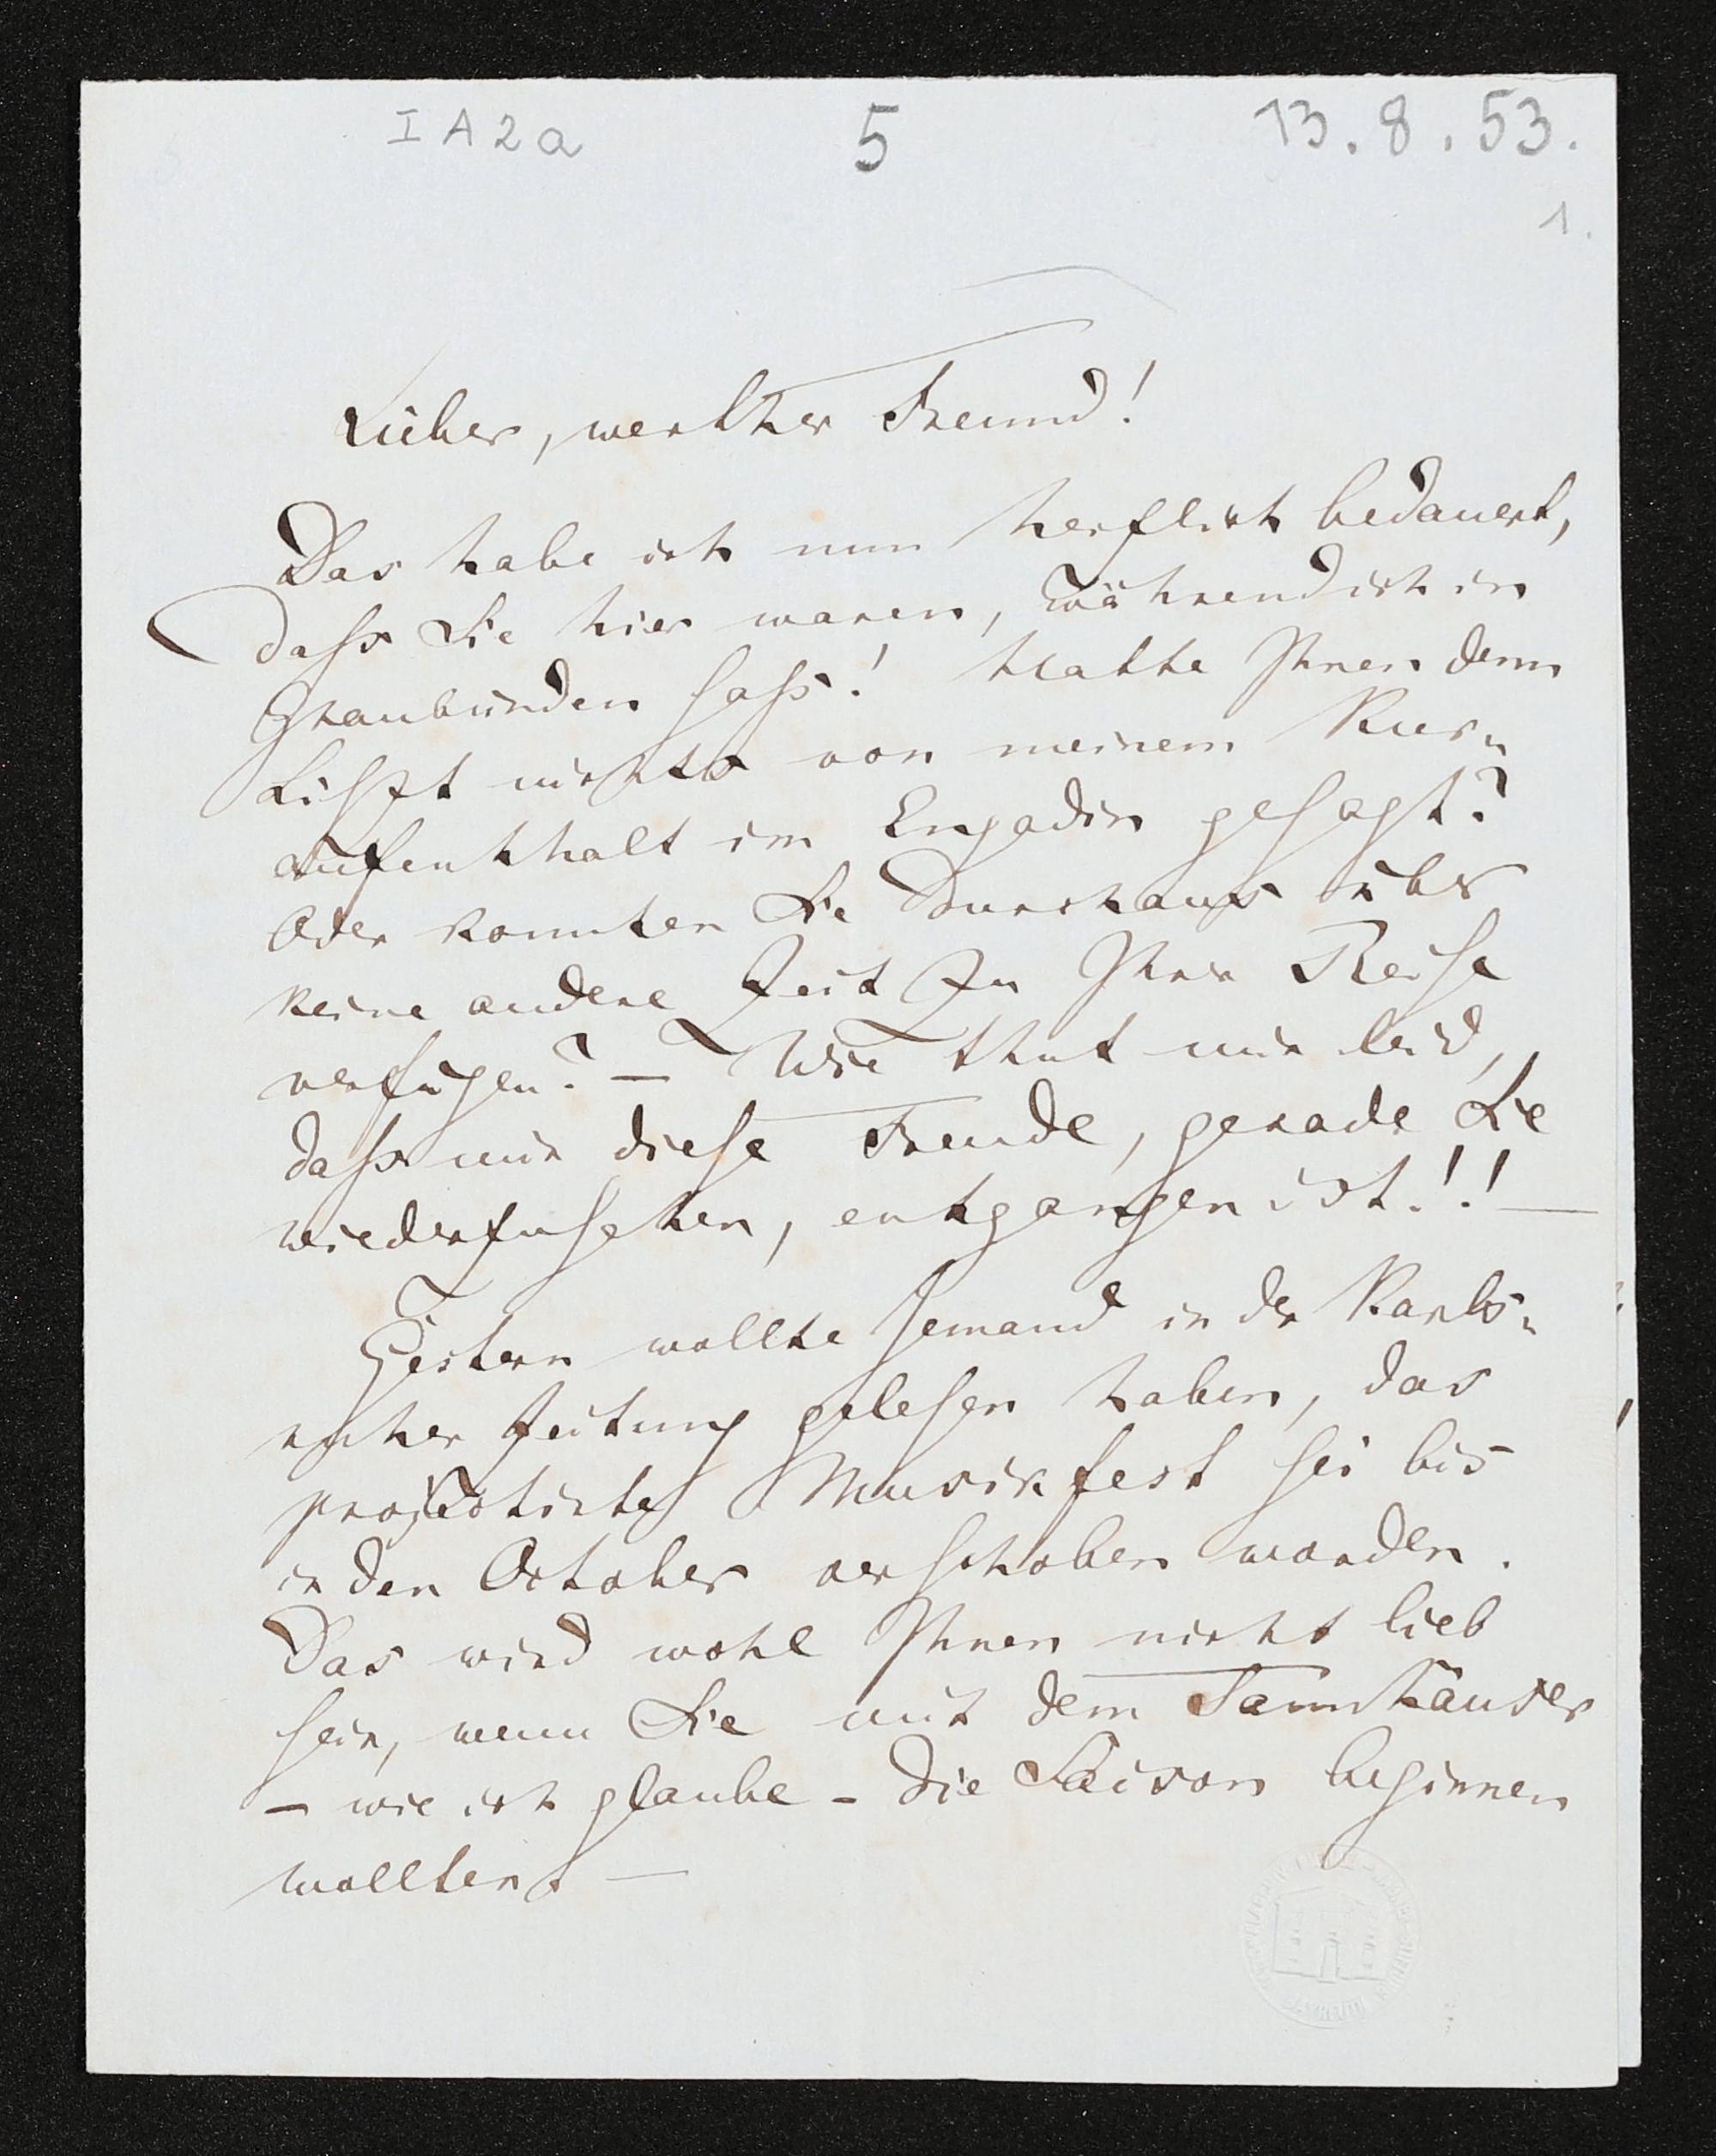 I A 2 a 5 13.8.53.
1.
Lieber, werther Freund!
Das habe ich nun herzlich bedauert,
dass Sie hier waren, während ich in
Graubünden sass! Hatte Ihnen denn
Liszt nichts von meinem Kur-
aufenthalt im Engadin gesagt?
Oder konnten Sie durchaus über
keine andere Zeit zu Ihrer Reise
verfügen? — Wie thut mir leid,
dass mir diese Freude, gerade Sie
wiederzusehen, entgangen ist!! —
Gestern wollte Jemand in der Karls-
ruher Zeitung gelesen haben, das
projectirte Musikfest sei bis
in den October verschoben worden.
Das wird wohl Ihnen nicht lieb
sein, wenn Sie mit dem Tannhäuser
– wie ich glaube – die Saison beginnen
wollten? —
BAYREUTH